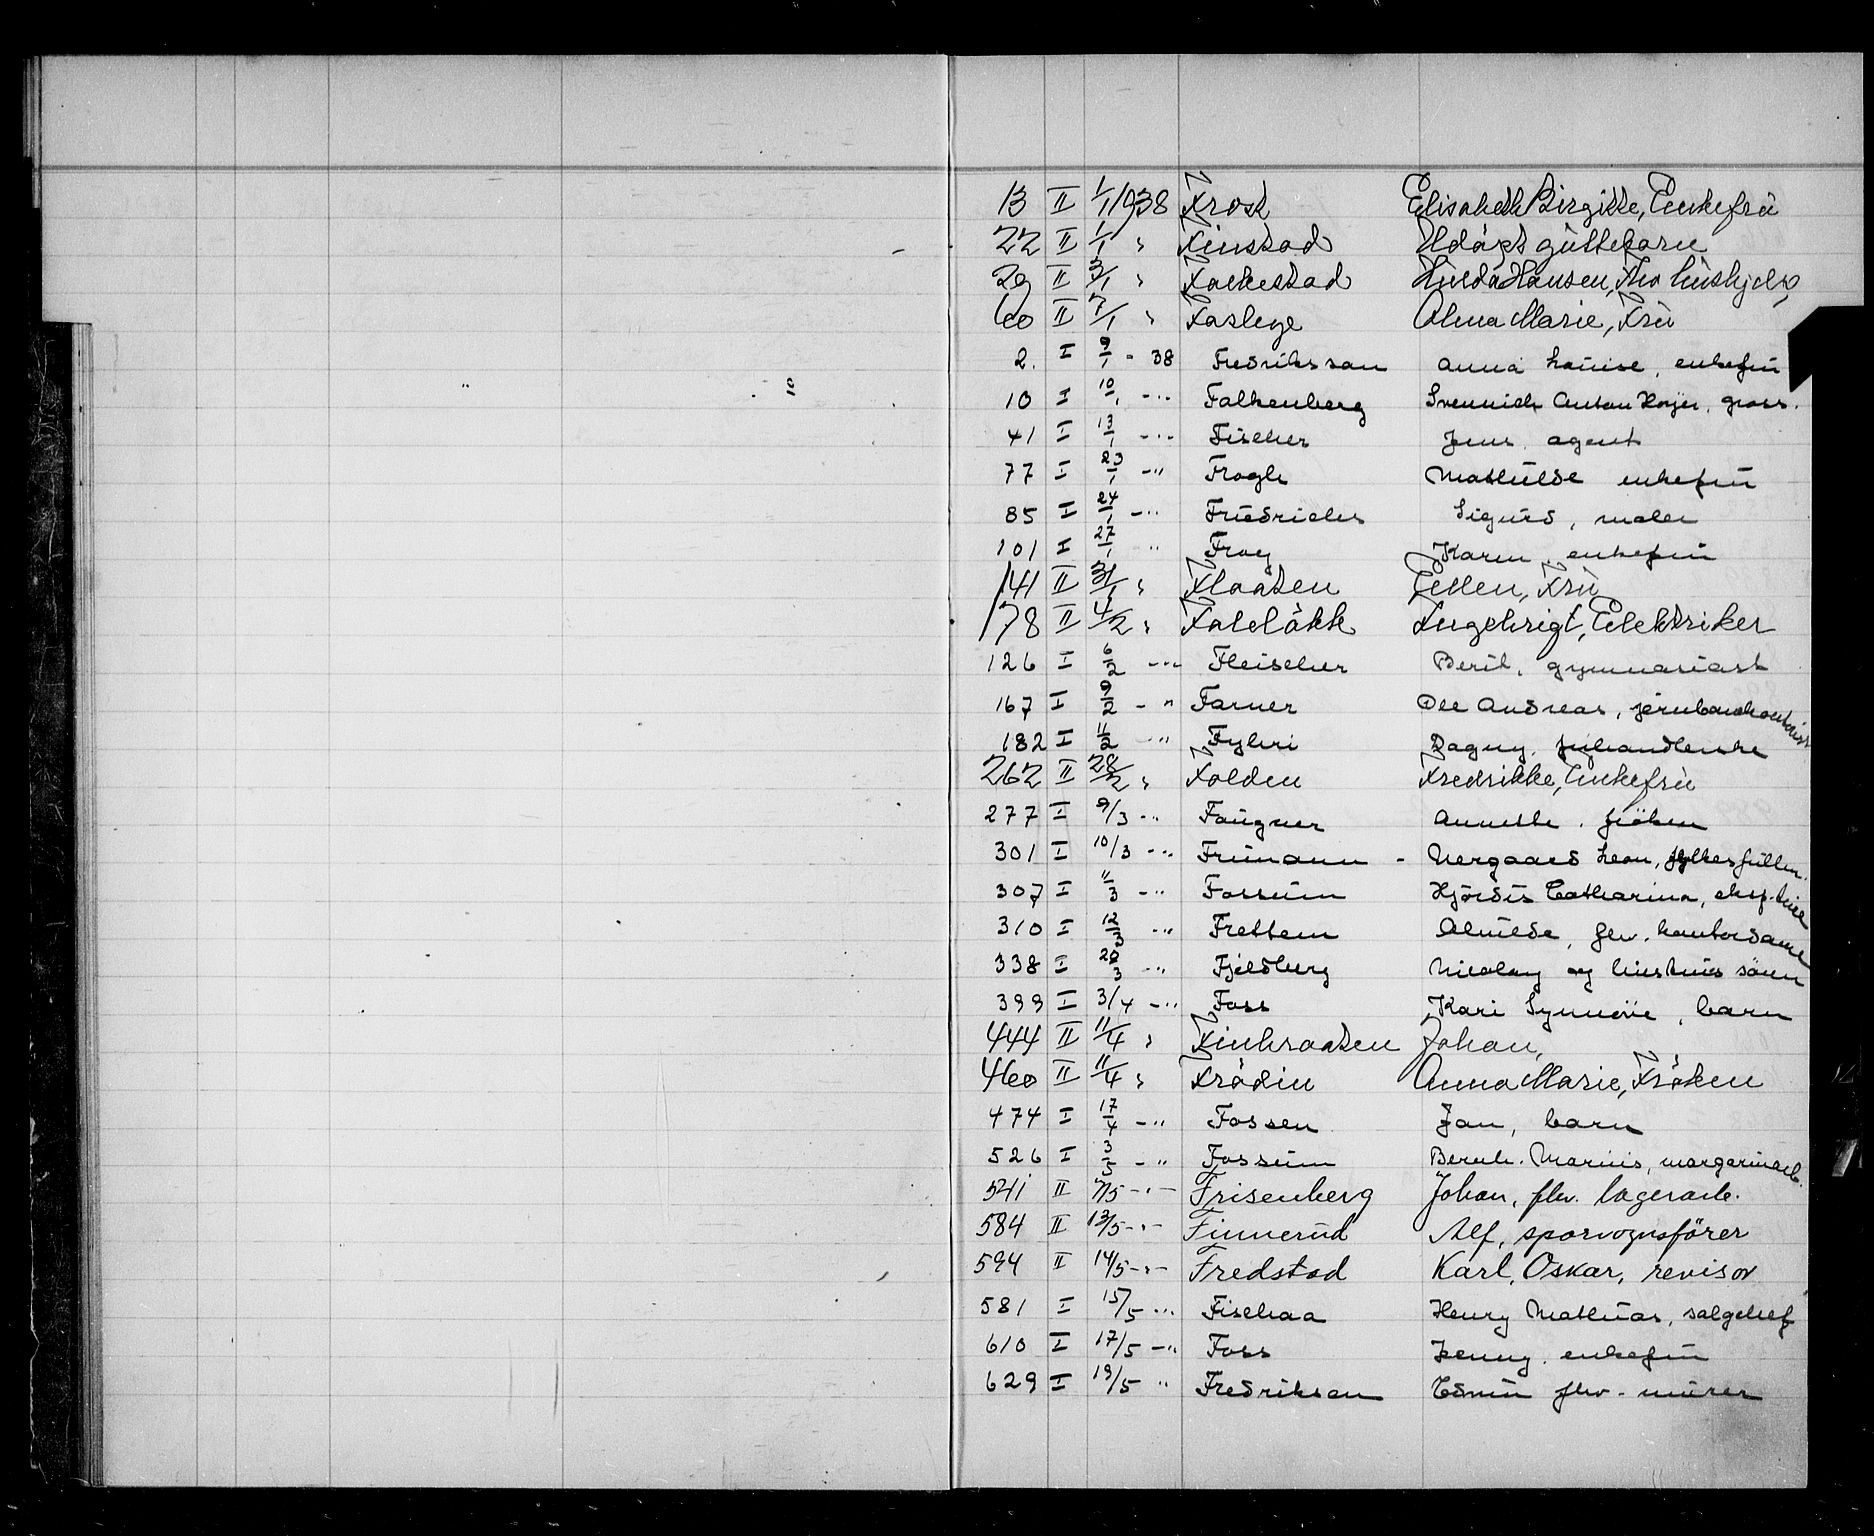 13 II 1/1 1938 Frost Elisabeth Birgitte, Enkefrü
22 II 1/1 " Finstad Udöpt güttebarn
29 II 3/1 " Falkestad Hülda Hansen, Fhv. hüshjelp
60 II 7/1 " Faslege Alma Marie, Frü
2. I 9/1 - 38 Fredriksson Anna Louise, enkefrü
10 I 10/1 - " Falkenberg Svennich Anton Höyer, gross.
41 I 13/1 - " Fischer Jens, agent
77 I 23/1 - " Frogh Mathilde enkefrü
85 I 24/1 - " Friedrichs Sigurd, maler
101 I 27/1 " Frog Karen, enkefrü
141 II 31/1 " Flaaten Ellen, Frü
178 II 4/2 " Falelökk Ingebrigt, Elektriker
126 I 6/2 - " Fleischer Berit, gymnasiast
167 I 9/2 - " Farner Ole Andreas, jernbanekontorist
182 I 11/2 - " Fyhri Dagny,
262 II 28/2 " Folden Fredrikke, Enkefrü
277 I 9/3 - " Faugner Annette, fröken
301 I 10/3 - " Frimann - Nergaard Leon, fylkesfüllm.
307 I 11/3 - " Fossüm Hjördis Catharina, eksp.trise
310 I 12/3 - " Frettem Alvilde, fhv. kontordame
338 I 29/3 - " Fjeldberg Nicolay og hüstrüs sönn
399 I 3/4 - " Foss Kari Synnöve, barn
444 II 11/4 " Finbraaten Johan,
460 II 11/4 " Frödin Anna Marie, Fröken
474 I 17/4 - " Fossen Jan, barn
526 I 3/5 - " Fossüm Bernh. Marius, margarinarb.
541 II 7/5 - " - Frisenberg Johan, fhv. lagerarb.
584 II 13/5 - " - Finnerüd Alf, sporvognsförer
594 II 14/5 - " - Fredstad Karl, Oskar, revisor
581 I 15/5 - " Fiskaa Henry Mathias, salgchef
610 I 17/5 - " Foss Jenny, enkefrü
629 I 19/5 " Fredriksen Edvin fhv. mürer